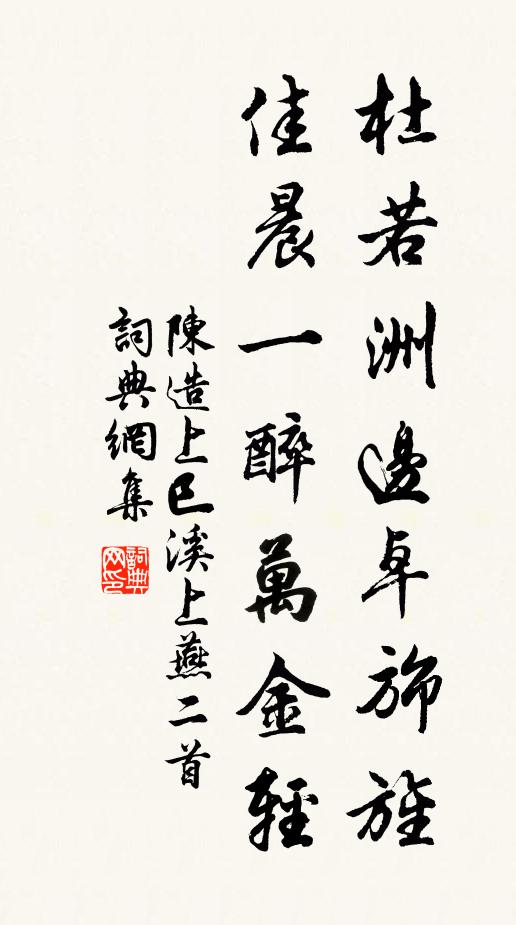 杜若洲邊卓旆旌
佳晨一醉萬金輕
陳造上巳溪上燕二首
詞典網集
詞典网印